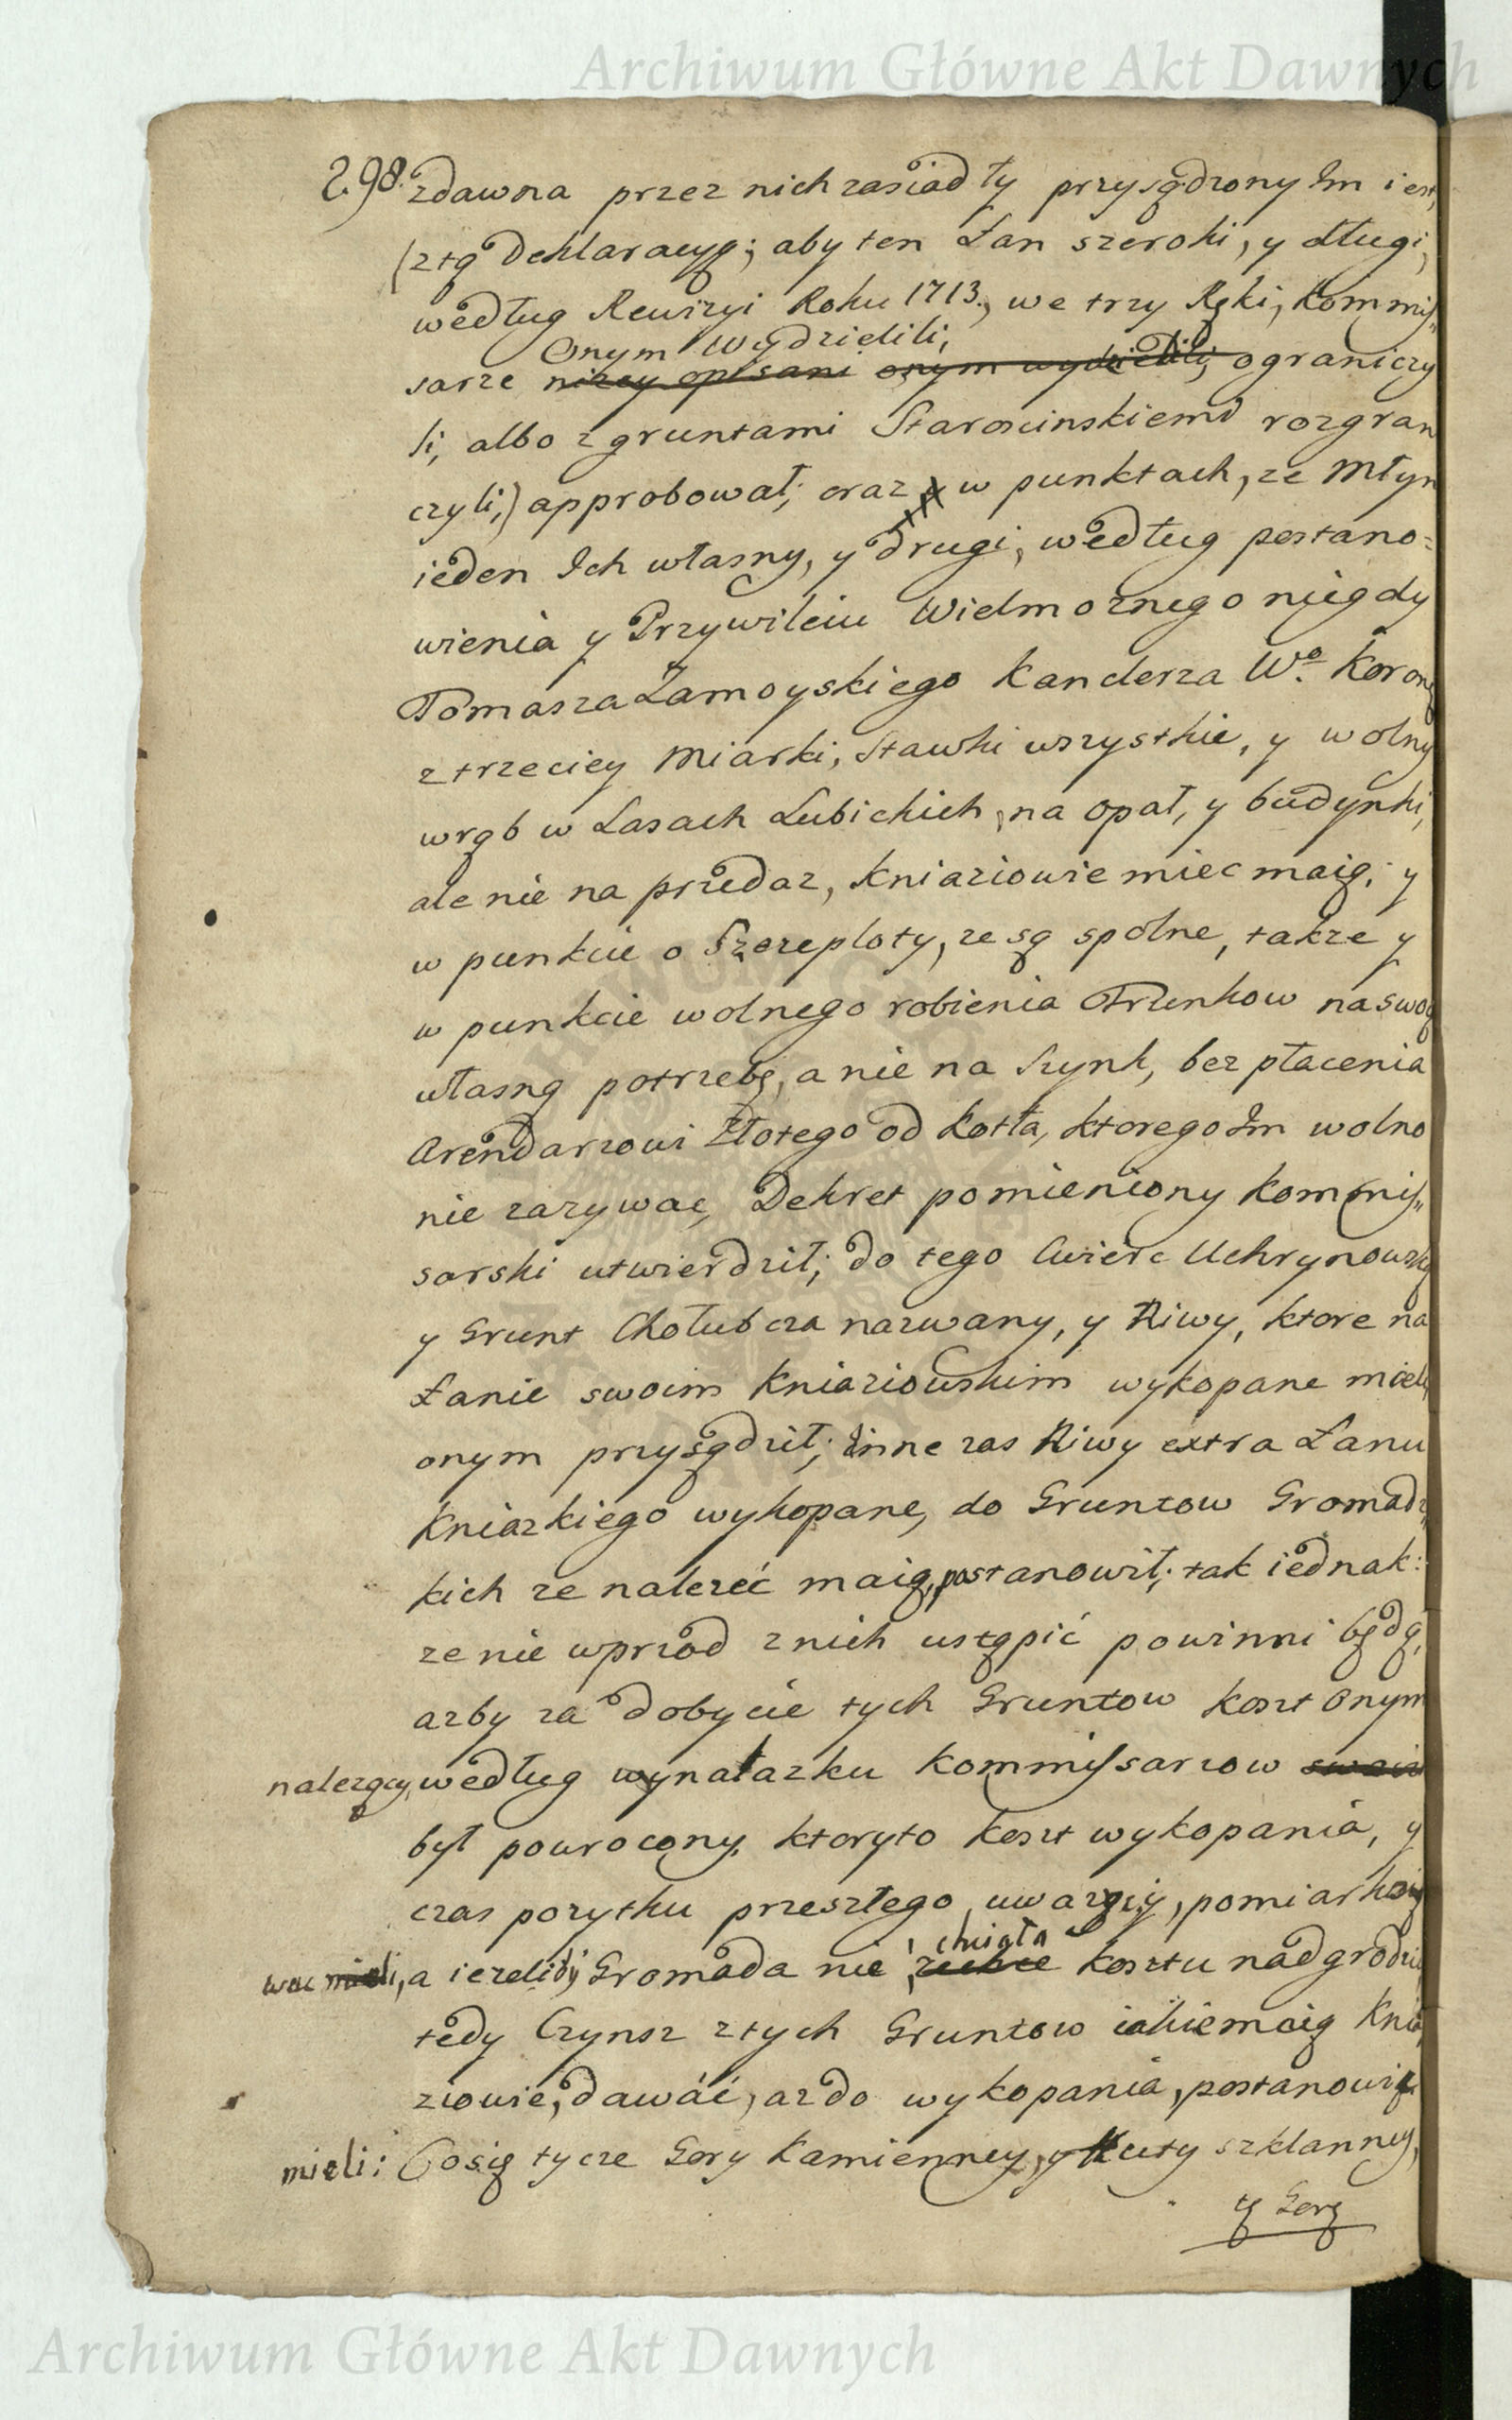 Archiwum Główne Akt Dawnych
298. zdawna przez nich zasiadły przysądzony Im iest,
(z tą Deklaracyą; aby ten Łan szeroki, y długi,
według Rewizyi Roku 1713., we trzy Ręki, Kommis„
Onym Wydzielili,
sarze nizey opisani onym wydzielili, ograniczy
li, albo z gruntami Staroscinskiemi rozgran
czyli;) approbował; oraz y w punktach, ze Młyn
ieden Ich własny, y drugi, według postano=
wienia y Przywileiu Wielmoznego niegdy
Tomasza Zamoyskiego Kanclerza Wo. Koron
z trzeciey Miarki, Stawki wszystkie, y wolny
wrąb w Lasach Lubickich, na opał, y budynki,
ale nie na przedaz, Kniaziowie miec maią; y
w punkcie o Szczeploty, ze są spolne, takze y
w punkcie wolnego robienia Trunkow na swoą
własną potrzebę, a nie na Szynk, bez płacenia
Arendarzowi Złotego od Kotła, ktorego Im wolno
nie zazywac, Dekret pomieniony Kommis„
sarski utwierdził; do tego Cwierc Uchrynowską
y Grunt Chołubcza nazwany, y Niwy, ktore na
Łanie swoim Kniaziowskim wykopane mieli
onym przysądził; Inne zas Niwy extra Łanu
Kniazkiego wykopane, do Gruntow Gromadz„
kich ze nalezeć maią, postanowił; tak iednak:
ze nie wprzod z nich ustąpić powinni będą,
azby za dobycie tych Gruntow koszt Onym
nalezący, według wynalazku Kommissarzow swoich
był powrocony, ktoryto koszt wykopania, y
czas pozytku przeszłego, uwazyiy, pomiarko
chciała
wac mieli, a iezeliby Gromada nie zechce kosztu nadgrodzic
tedy Czynsz z tych Gruntow iakie maią Knia
ziowie, dawáć, az do wykopania, postanowi
mieli: Co się tycze Gory Kamienney, y Huty szklanney,
tę Gorę
Archiwum Główne Akt Dawnych